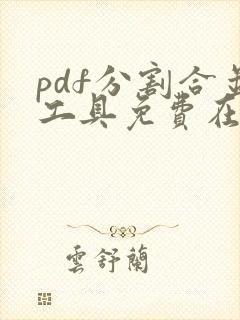 pdf分割合并
工具免費在
雲舒蘭